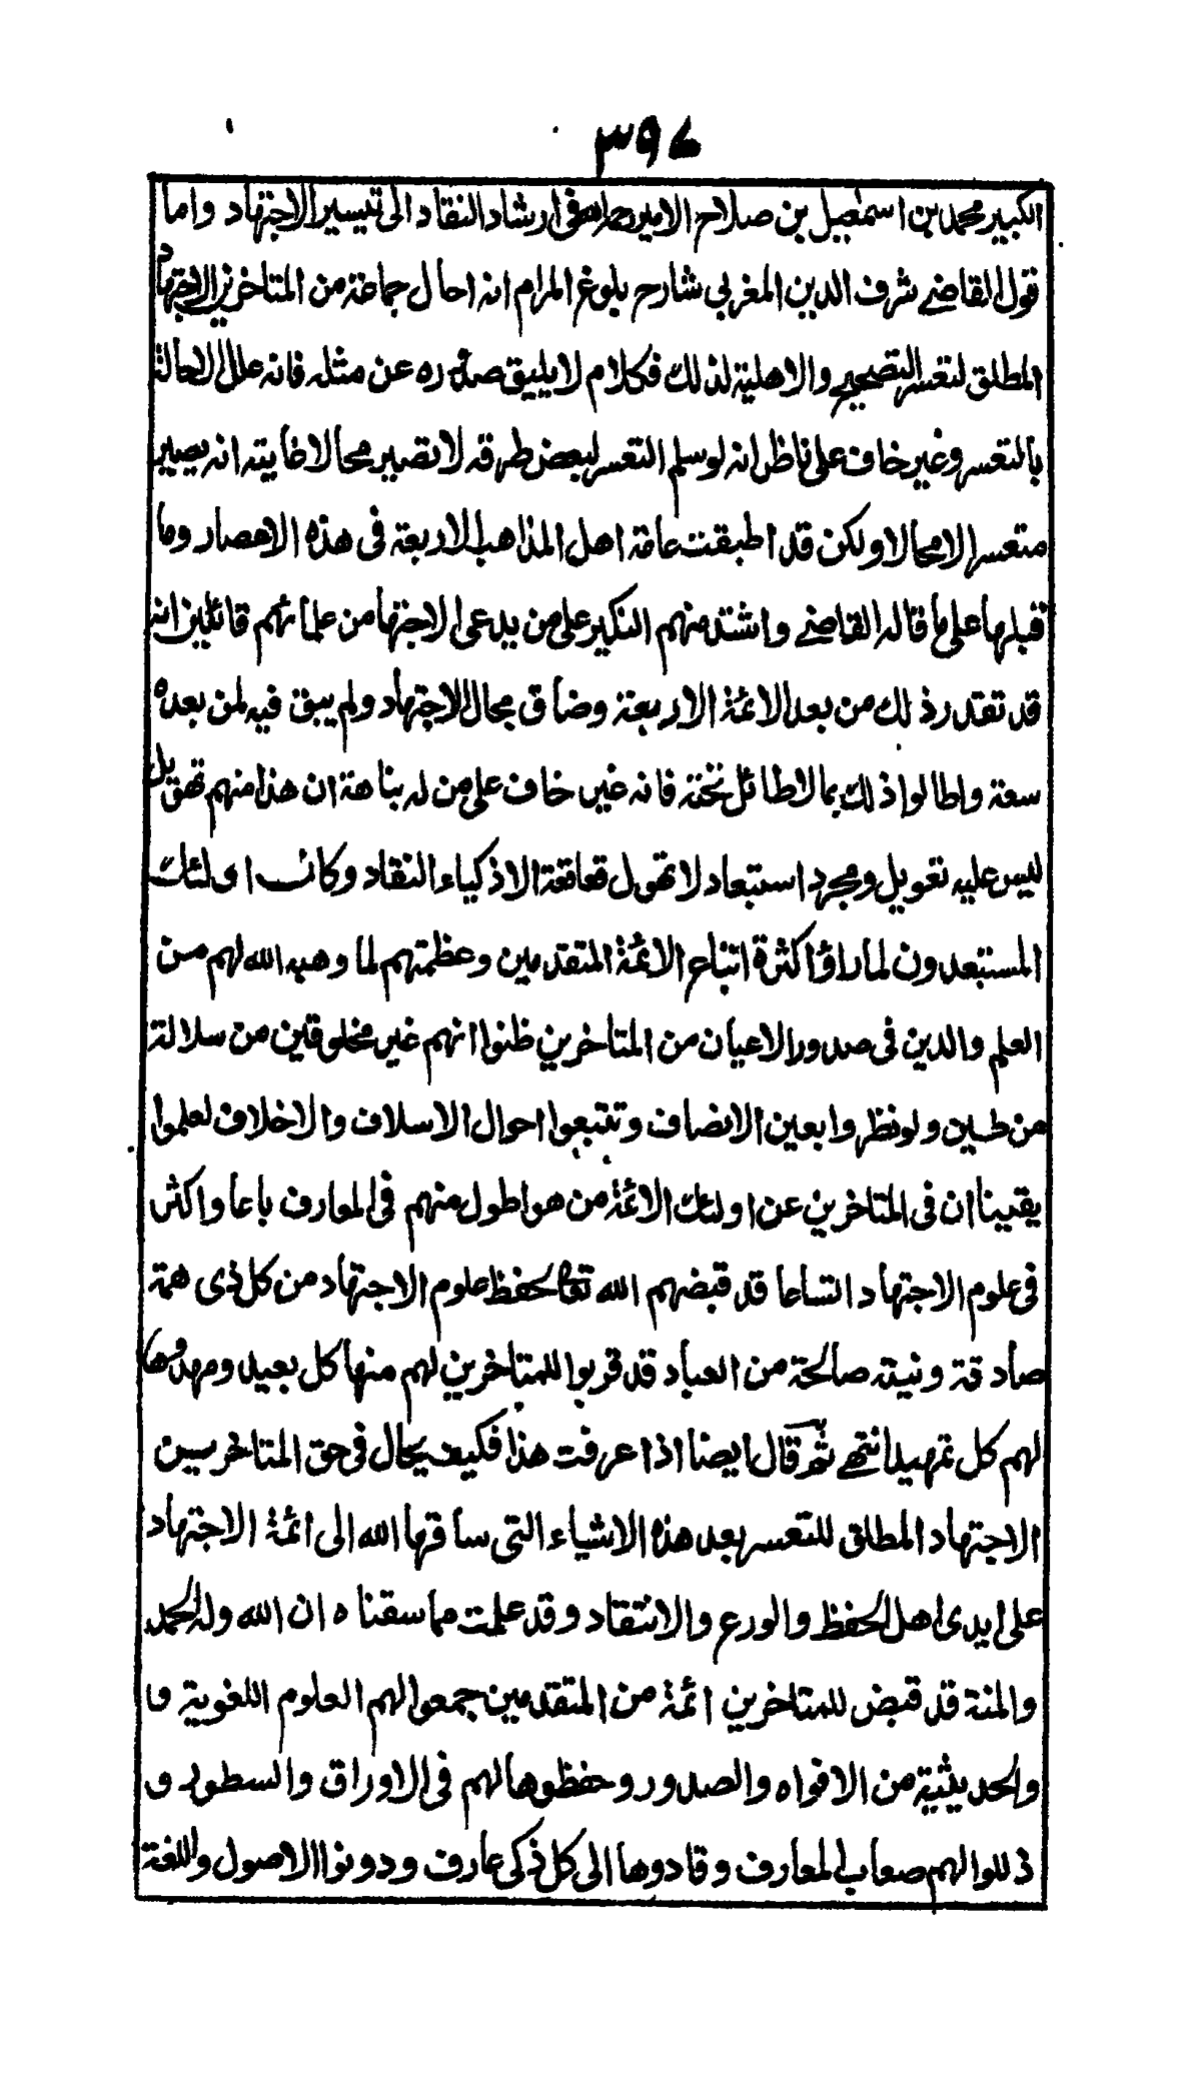 ٣٩٨
الكبير محمد بن اسمعيل بن صلاح الامير رحمه الله فى ارشاد النقاد الى تيسير الاجتهاد واما
قول القاضے شرف الدين المغربى شارح بلوغ المرام انه احال جماعة من المتاخرين الاجتهاد
المطلق لتعسر التصحيح والاهلية لذلك فكلام لا يليق صدوره عن مثله فانه علل الاحالة
بالتعسر وغير خاف على ناظر انه لو سلم التعسر لبعض طرقه لا تصير محالا غايته انه يصير
متعسرا لا محالا ولكن قد اطبقت عامة اهل المذاهب الاربعة فى هذه الاعصار وما
قبلها على ما قاله القاضے واشتد منهم النكير على من يدعى الاجتها من علمائهم قائلين انه
قد تقتدر ذلك من بعد الائمة الاربعة وضاق مجال الاجتهاد ولم يبق فيه لمن بعده
سعة واطالوا ذلك بما لا طائل تحته فانه غير خاف على من له نباهة ان هذا منهم تهويل
ليس عليه تعويل ومجرد استبعاد لا تهول قعاقعه الاذكياء النقاد وكان اولئك
المستبعدون لما راؤا كثرة اتباع الائمة المتقدمين وعظمتهم لما وهبه الله لهم من
العلم والدين فى صدور الاعيان من المتاخرين ظنوا انهم غير مخلوقين من سلالة
من طين ولو نظروا بعين الانصاف وتتبعوا احوال الاسلاف والاخلاف لعلموا
يقينا ان فى المتاخرين عن اولئك الائمة من هو اطول منهم فى المعارف باعا واكثر
فى علوم الاجتهاد اتساعا قد قبضهم الله تعالى لحفظ علوم الاجتهاد من كل ذى همة
صادقة ونية صالحة من العباد قد قربوا للمتاخرين لهم منها كل بعيد ومهدوها
لهم كل تمهيد انتهے ثم قال ايضا اذا عرفت هذا فكيف يحال فى حق المتاخرين
الاجتهاد المطلق للتعسر بعد هذه الاشياء التى ساقها الله الى ائمة الاجتهاد
على ايدى اهل الحفظ والورع والانتقاد وقد علمت مما سقناه ان الله وله الحمد
والمنة قد قبض للمتاخرين ائمة من المتقدمين جمعوا لهم العلوم اللغوية و
والحديثية من الافواه والصدور وحفظوها لهم فى الاوراق والسطور و
ذللوا لهم صعاب المعارف وقادوها الى كل ذكى عارف ودونوا الاصول واللغة